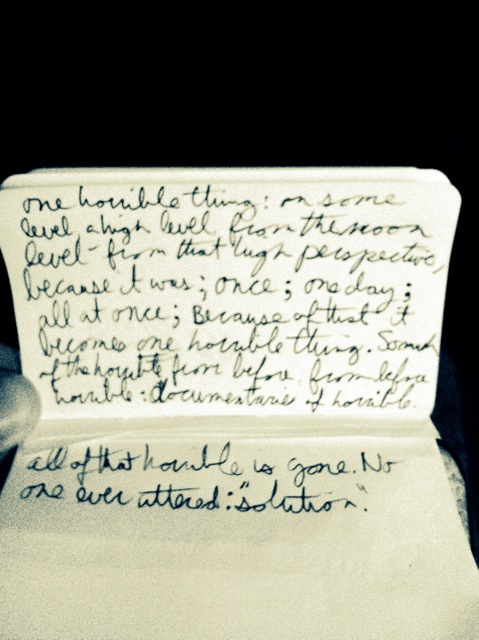 one horrible thing: on some
level a high level, from the moon
level - from that high perspective,
because it was; once; one day;
all at once; Because of that it
becomes one horrible thing. So much
of the horrible from before, from before
horrible: documentaries of horrible.
all of that horrible is gone. No
one ever uttered: "solution."